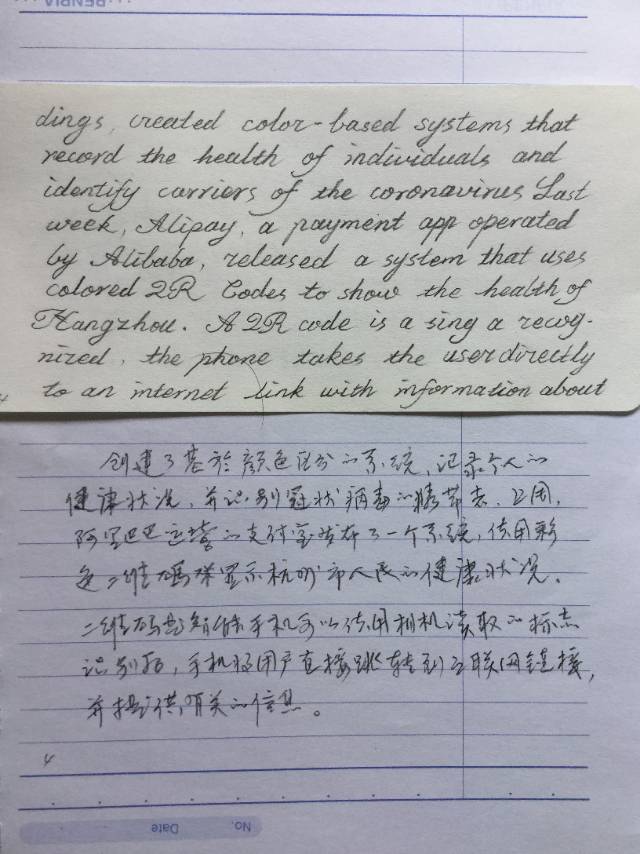 dings, created color-based systems that
record the health of individuals and
identify carriers of the coronavirus Last
week, Alipay, a payment app operated
by Alibaba, released a system that uses
colored QR Codes to show the health of
Hangzhou. A QR code is a sing a recog-
nized, the phone takes the user directly
to an internet link with information about
创建了基於颜色区分的系统,记录个人的
健康状况,并识别冠状病毒的携带者.上周,
阿里巴巴运营的支付宝发布了一个系统,使用彩
色二维码来显示杭州市人民的健康状况.
二维码是智能手机可以使用相机读取的标志
识别后,手机将用户直接跳转到互联网链接,
并提供有关的信息。
4
No. Date